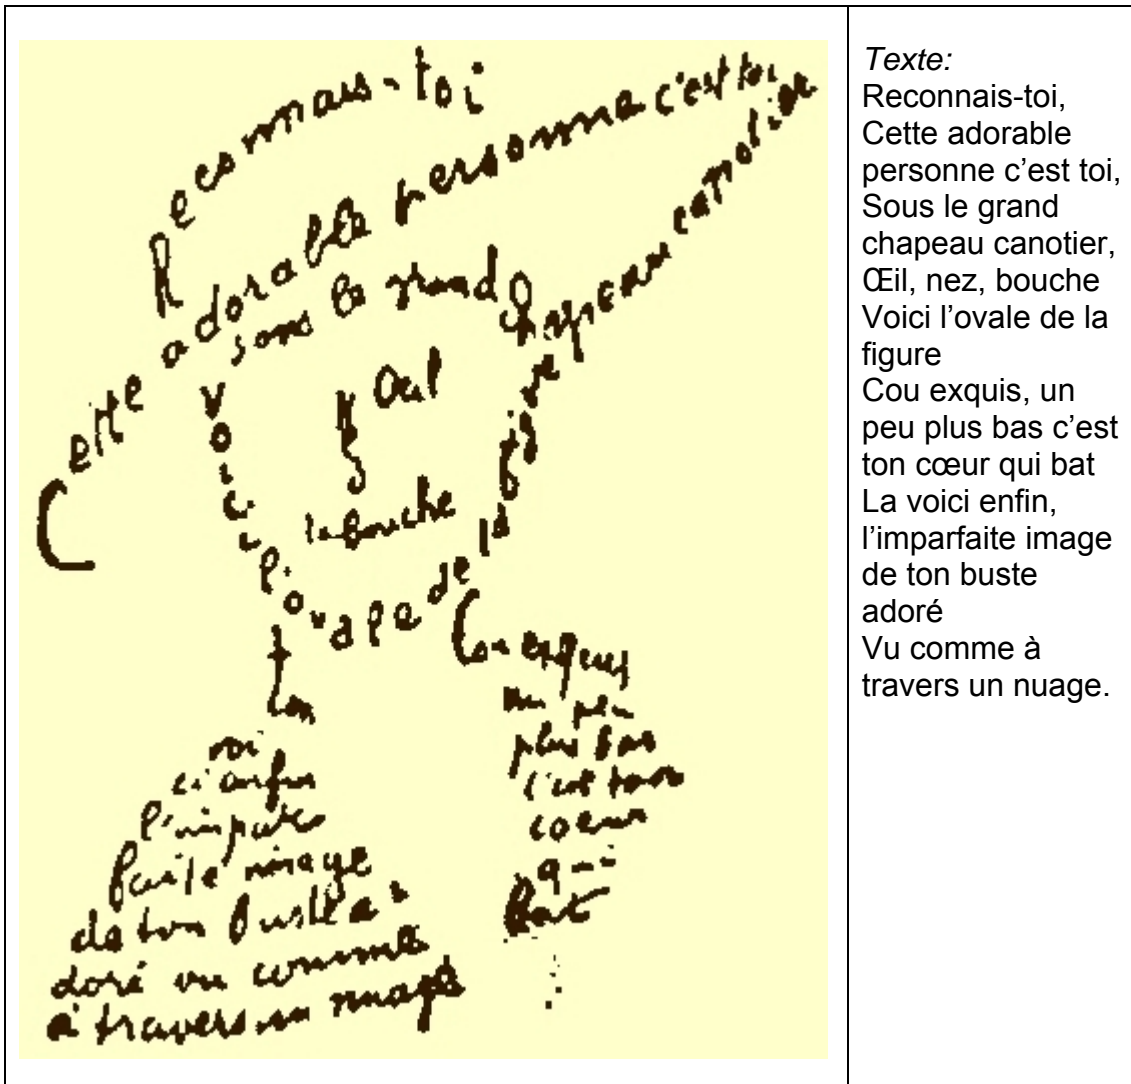 Reconnais-toi
Cette adorable personne c'est toi
sous le grand chapeau canotier
Oeil
Nez
la bouche
Voici l'ovale de la figure
Cou exquis
un peu
plus bas
c'est ton
coeur
qui
bat
voi
ci enfin
l'impar
faite image
de ton buste a
doré vu comme
à travers un nuage
Texte:
Reconnais-toi,
Cette adorable
personne c'est toi,
Sous le grand
chapeau canotier,
Œil, nez, bouche
Voici l'ovale de la
figure
Cou exquis, un
peu plus bas c'est
ton cœur qui bat
La voici enfin,
l'imparfaite image
de ton buste
adoré
Vu comme à
travers un nuage.